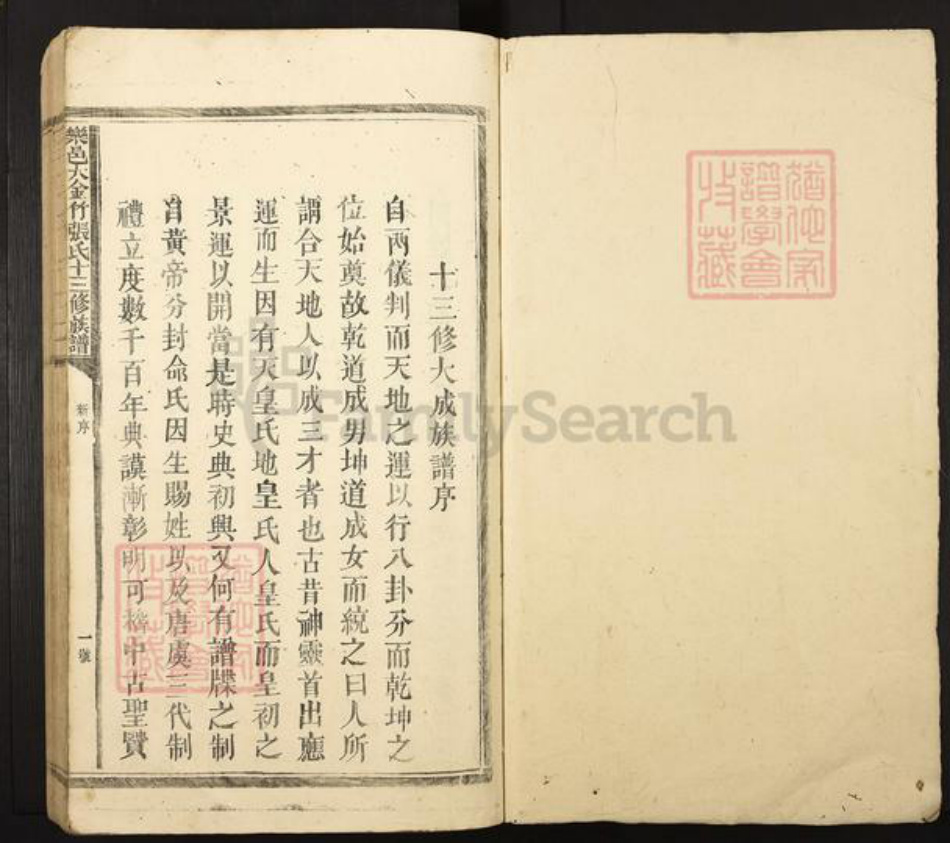 猶他家
譜學會
收藏
十三修大成族譜序
自兩儀判而天地之運以行八卦分而乾坤之
位始奠故乾道成男坤道成女而統之曰人所
謂合天地人以成三才者也古昔神靈首出應
運而生因有天皇氏地皇氏人皇氏而皇初之
景運以開當是時史典初興又何有譜牒之制
自黃帝分封命氏因生賜姓以及唐虞三代制
禮立度數千百年典謨漸彰明可稽中古聖賢
樂邑大金竹張氏十三修族譜
新序
一號
猶他家
譜學會
收藏
FamilySearch